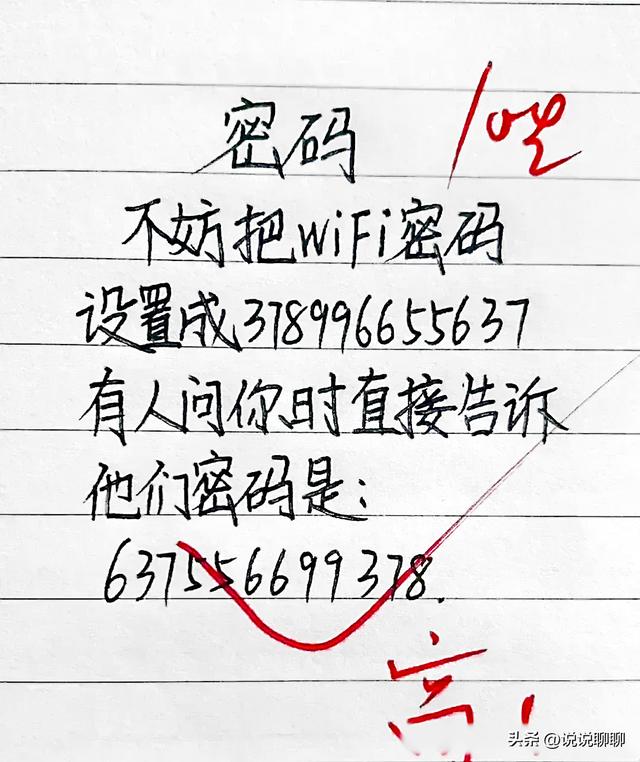 密码
不妨把WiFi密码
设置成378996655637
有人问你时直接告诉
他们密码是:
637556699378.
头条 @说说聊聊